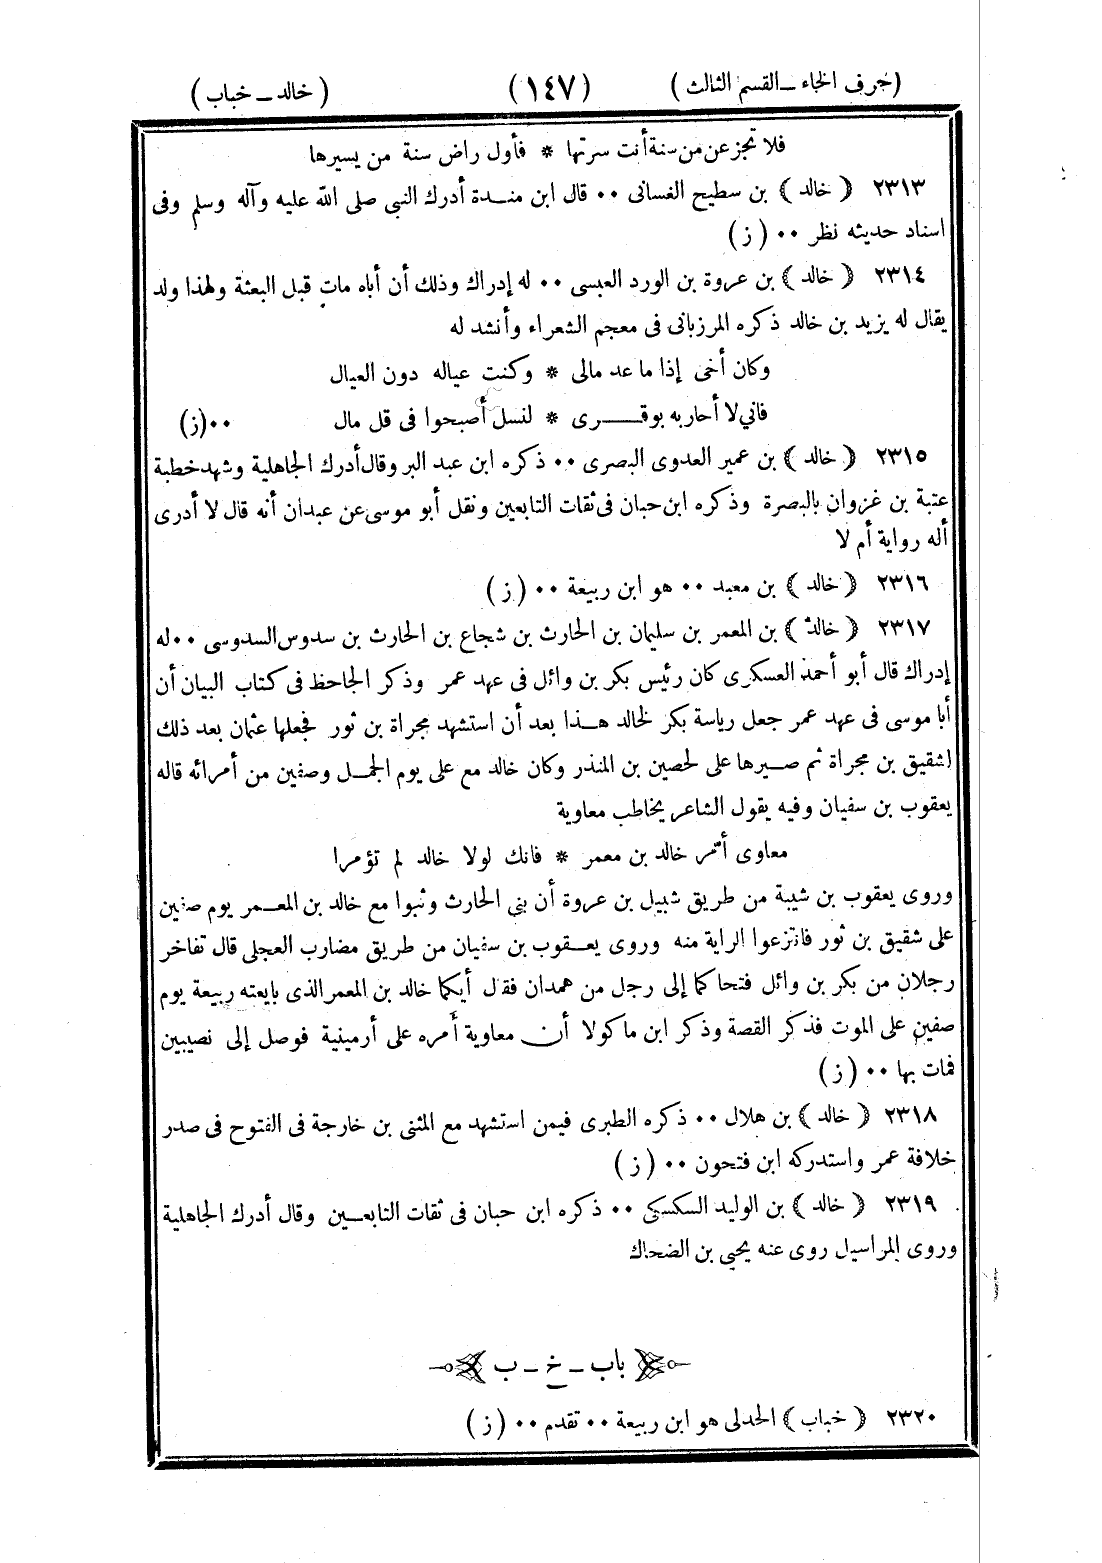 (حرف الخاء ـ القسم الثالث) (١٤٧) (خالد ـ خباب)
فلا تجزعن من سنة أنت سرتها * فأول راض سنة من يسيرها
٢٣١٣ ﴿ خالد ﴾ بن سطيح الغسانى ٠٠ قال ابن منـدة أدرك النبى صلى الله عليه وآله وسلم وفى
اسناد حديثه نظر ٠٠ (ز)
٢٣١٤ ﴿ خالد ﴾ بن عروة بن الورد العبسى ٠٠ له إدراك وذلك أن أباه مات قبل البعثة ولهذا ولد
يقال له يزيد بن خالد ذكره المرزبانى فى معجم الشعراء وأنشد له
وكان أخى إذا ما عد مالى * وكنت عياله دون العيال
فاني لا أحاربه بوقـــرى * لنسل أصبحوا فى قل مال ٠٠(ز)
٢٣١٥ ﴿ خالد ﴾ بن عمير العدوى البصرى ٠٠ ذكره ابن عبد البر وقال أدرك الجاهلية وشهد خطبة
عتبة بن غزوان بالبصرة وذكره ابن حبان فى ثقات التابعين ونقل أبو موسى عن عبدان أنه قال لا أدرى
أله رواية أم لا
٢٣١٦ ﴿ خالد ﴾ بن معبد ٠٠ هو ابن ربيعة ٠٠ (ز)
٢٣١٧ ﴿ خالد ﴾ بن المعمر بن سليمان بن الحارث بن شجاع بن الحارث بن سدوس السدوسى ٠٠ له
إدراك قال أبو أحمد العسكرى كان رئيس بكر بن وائل فى عهد عمر وذكر الجاحظ فى كتاب البيان أن
أبا موسى فى عهد عمر جعل رياسة بكر لخالد هـذا بعد أن استشهد مجراة بن ثور فجعلها عثمان بعد ذلك
لشقيق بن مجراة ثم صـيرها على لحصين بن المنذر وكان خالد مع على يوم الجمـل وصفين من أمرائه قاله
يعقوب بن سفيان وفيه يقول الشاعر يخاطب معاوية
معاوى أمّر خالد بن معمر * فانك لولا خالد لم تؤمرا
وروى يعقوب بن شيبة من طريق شبيل بن عروة أن بني الحارث وثبوا مع خالد بن المعـمر يوم صفين
على شقيق بن ثور فانتزعوا الراية منه وروى يعـقوب بن سفيان من طريق مضارب العجلى قال تفاخر
رجلان من بكر بن وائل فتحاكما إلى رجل من همدان فقال أيكما خالد بن المعمر الذى بايعته ربيعة يوم
صفين على الموت فذكر القصة وذكر ابن ماكولا أن معاوية أمره على أرمينية فوصل إلى نصيبين
فمات بها ٠٠ (ز)
٢٣١٨ ﴿ خالد ﴾ بن هلال ٠٠ ذكره الطبرى فيمن استشهد مع المثنى بن خارجة فى الفتوح فى صدر
خلافة عمر واستدركه ابن فتحون ٠٠ (ز)
٢٣١٩ ﴿ خالد ﴾ بن الوليد السكسكى ٠٠ ذكره ابن حبان فى ثقات التابعـين وقال أدرك الجاهلية
وروى المراسيل روى عنه يحيى بن الضحاك
باب ـ خ ـ ب
٢٣٢٠ ﴿ خباب ﴾ الجدلى هو ابن ربيعة ٠٠ تقدم ٠٠ (ز)